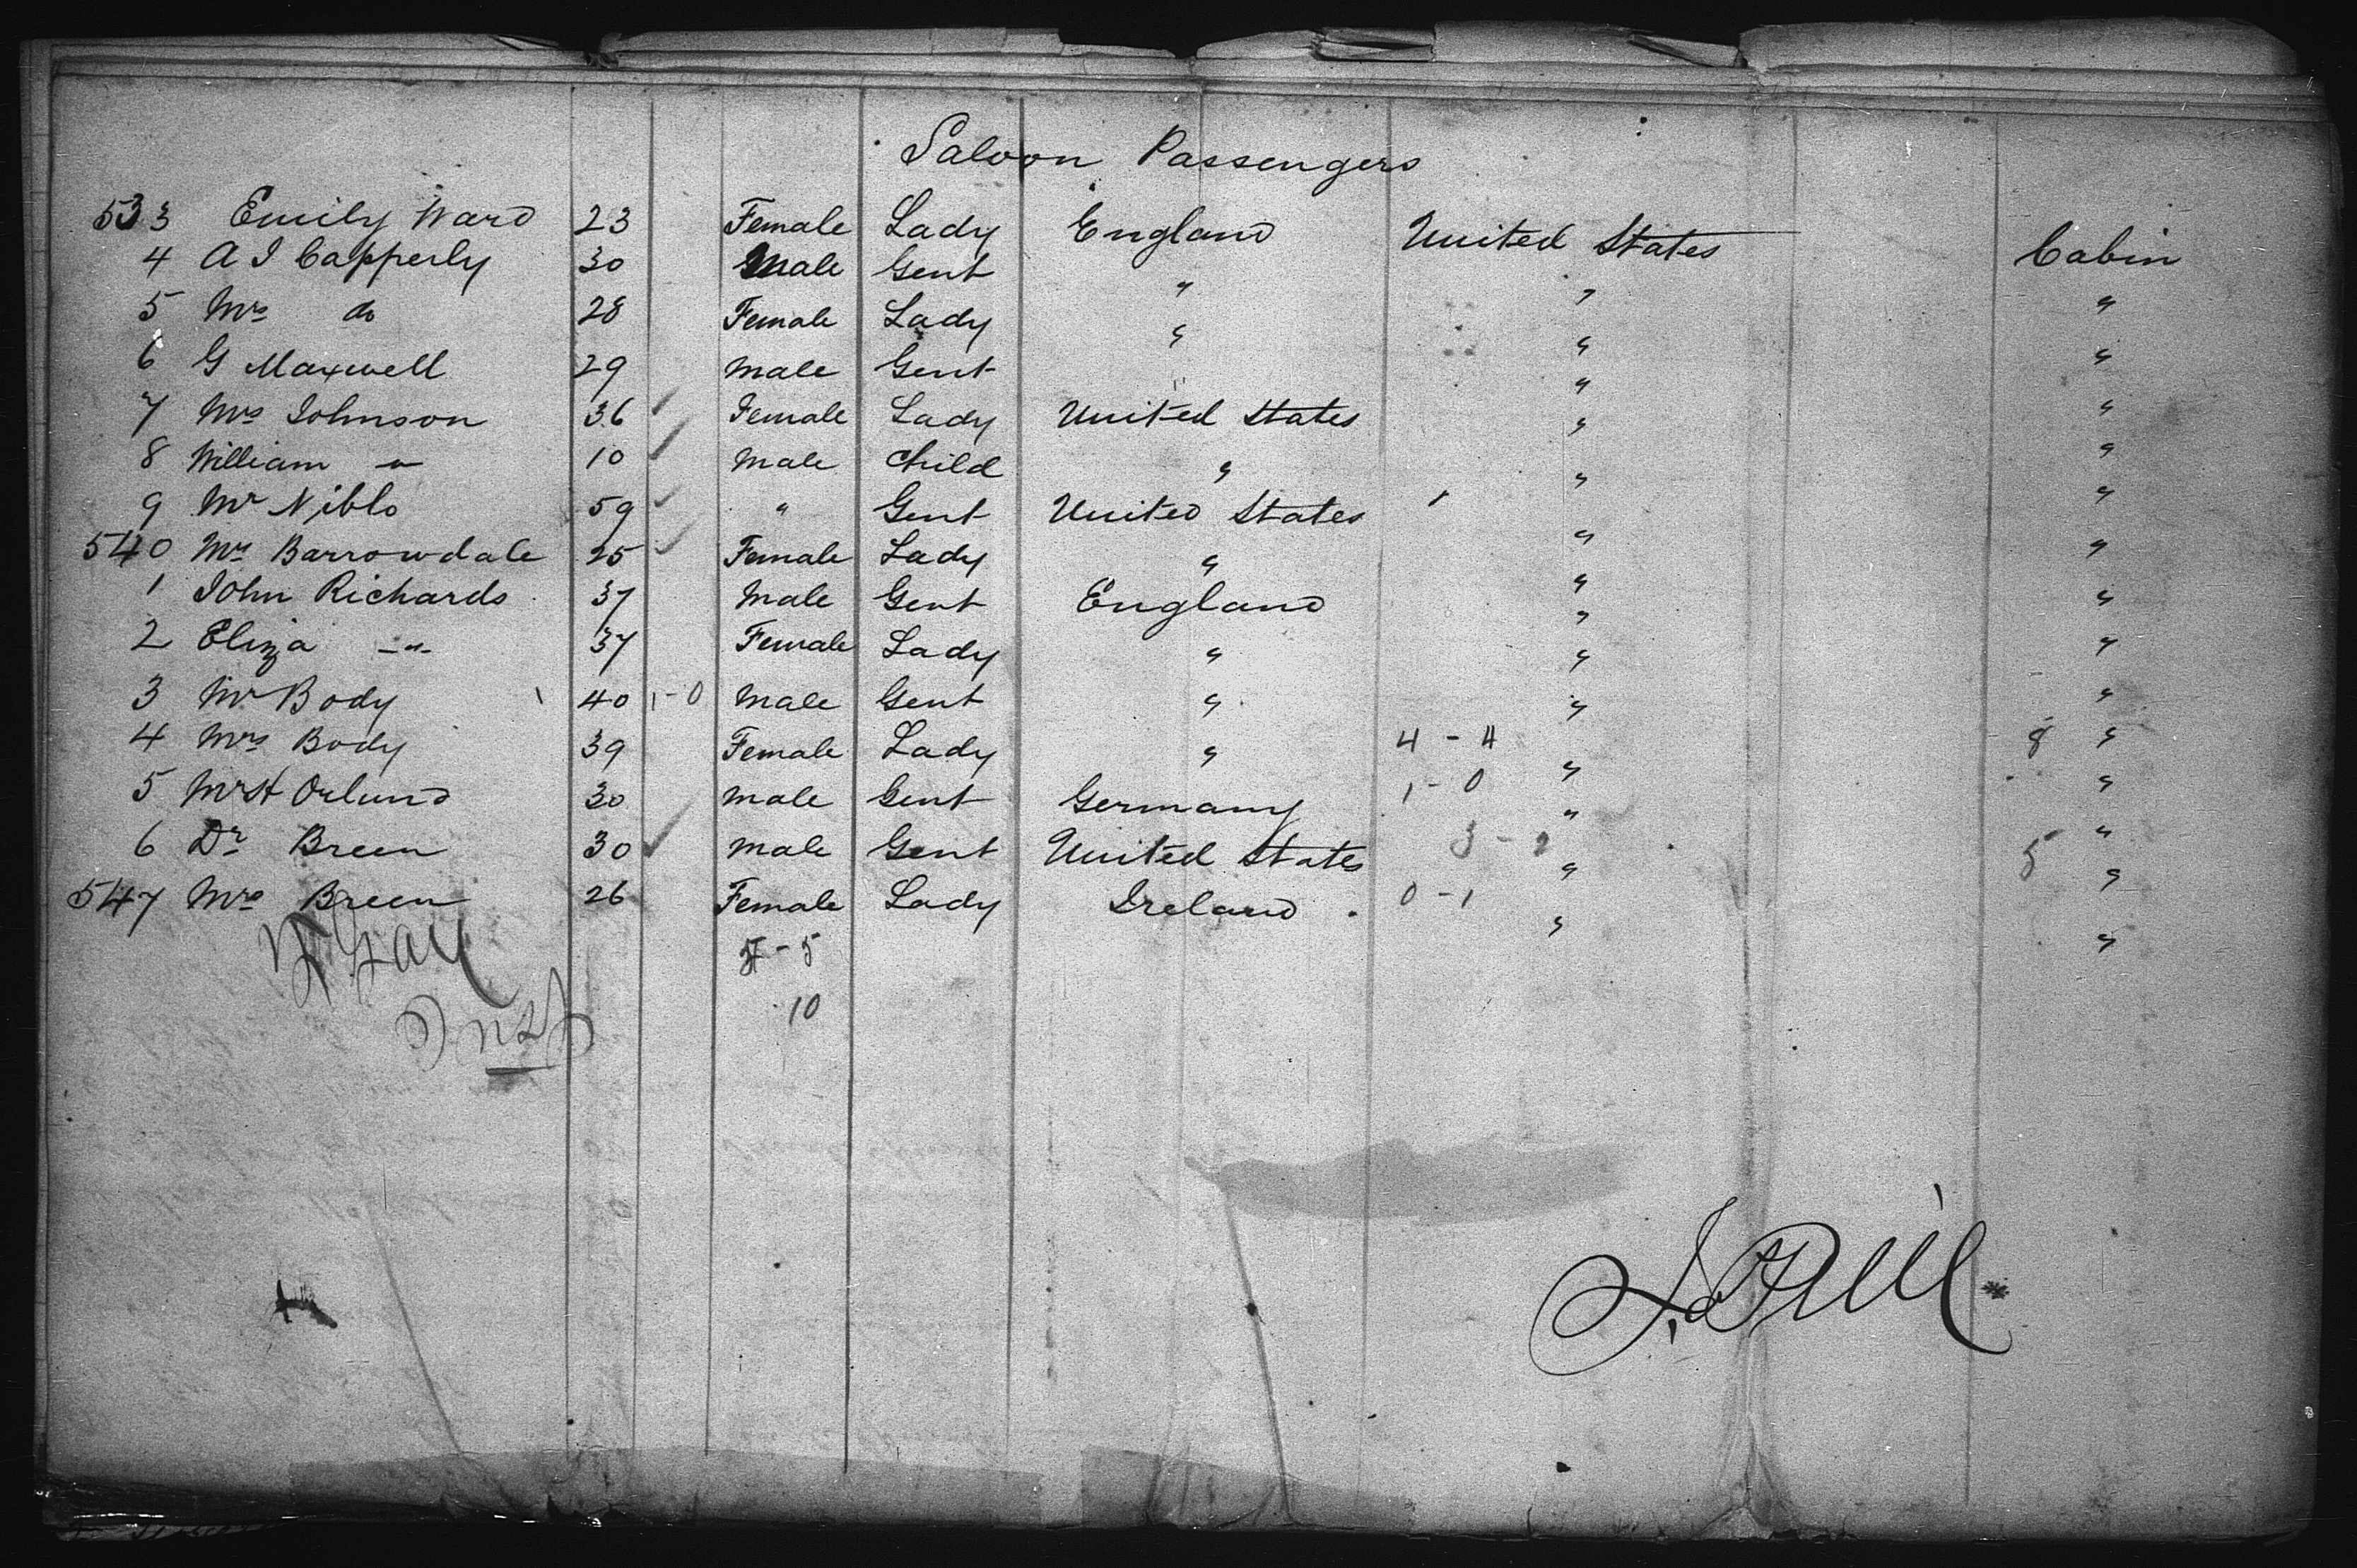 Saloon Passengers
533 Emily Ward 23 Female Lady England United States Cabin
4 A J Capperly 30 Male Gent " " "
5 Mrs do 28 Female Lady " " "
6 G Maxwell 29 Male Gent " "
7 Mrs Johnson 36 Female Lady United States " "
8 William -"- 10 Male Child " " "
9 Mr Niblo 59 " Gent United States " "
540 Mrs Barrowdale 25 Female Lady " " "
1 John Richards 37 Male Gent England " "
2 Eliza -"- 37 Female Lady " " "
3 Mr Body 40 1-0 Male Gent " " "
4 Mrs Body 39 Female Lady " 4-4 " 8 "
5 Mr H Orlund 30 Male Gent Germany 1-0 " "
6 Dr Breen 30 Male Gent United States 3-2 " 5 "
547 Mrs Breen 26 Female Lady Ireland 0-1 " "
-5
10
Insp